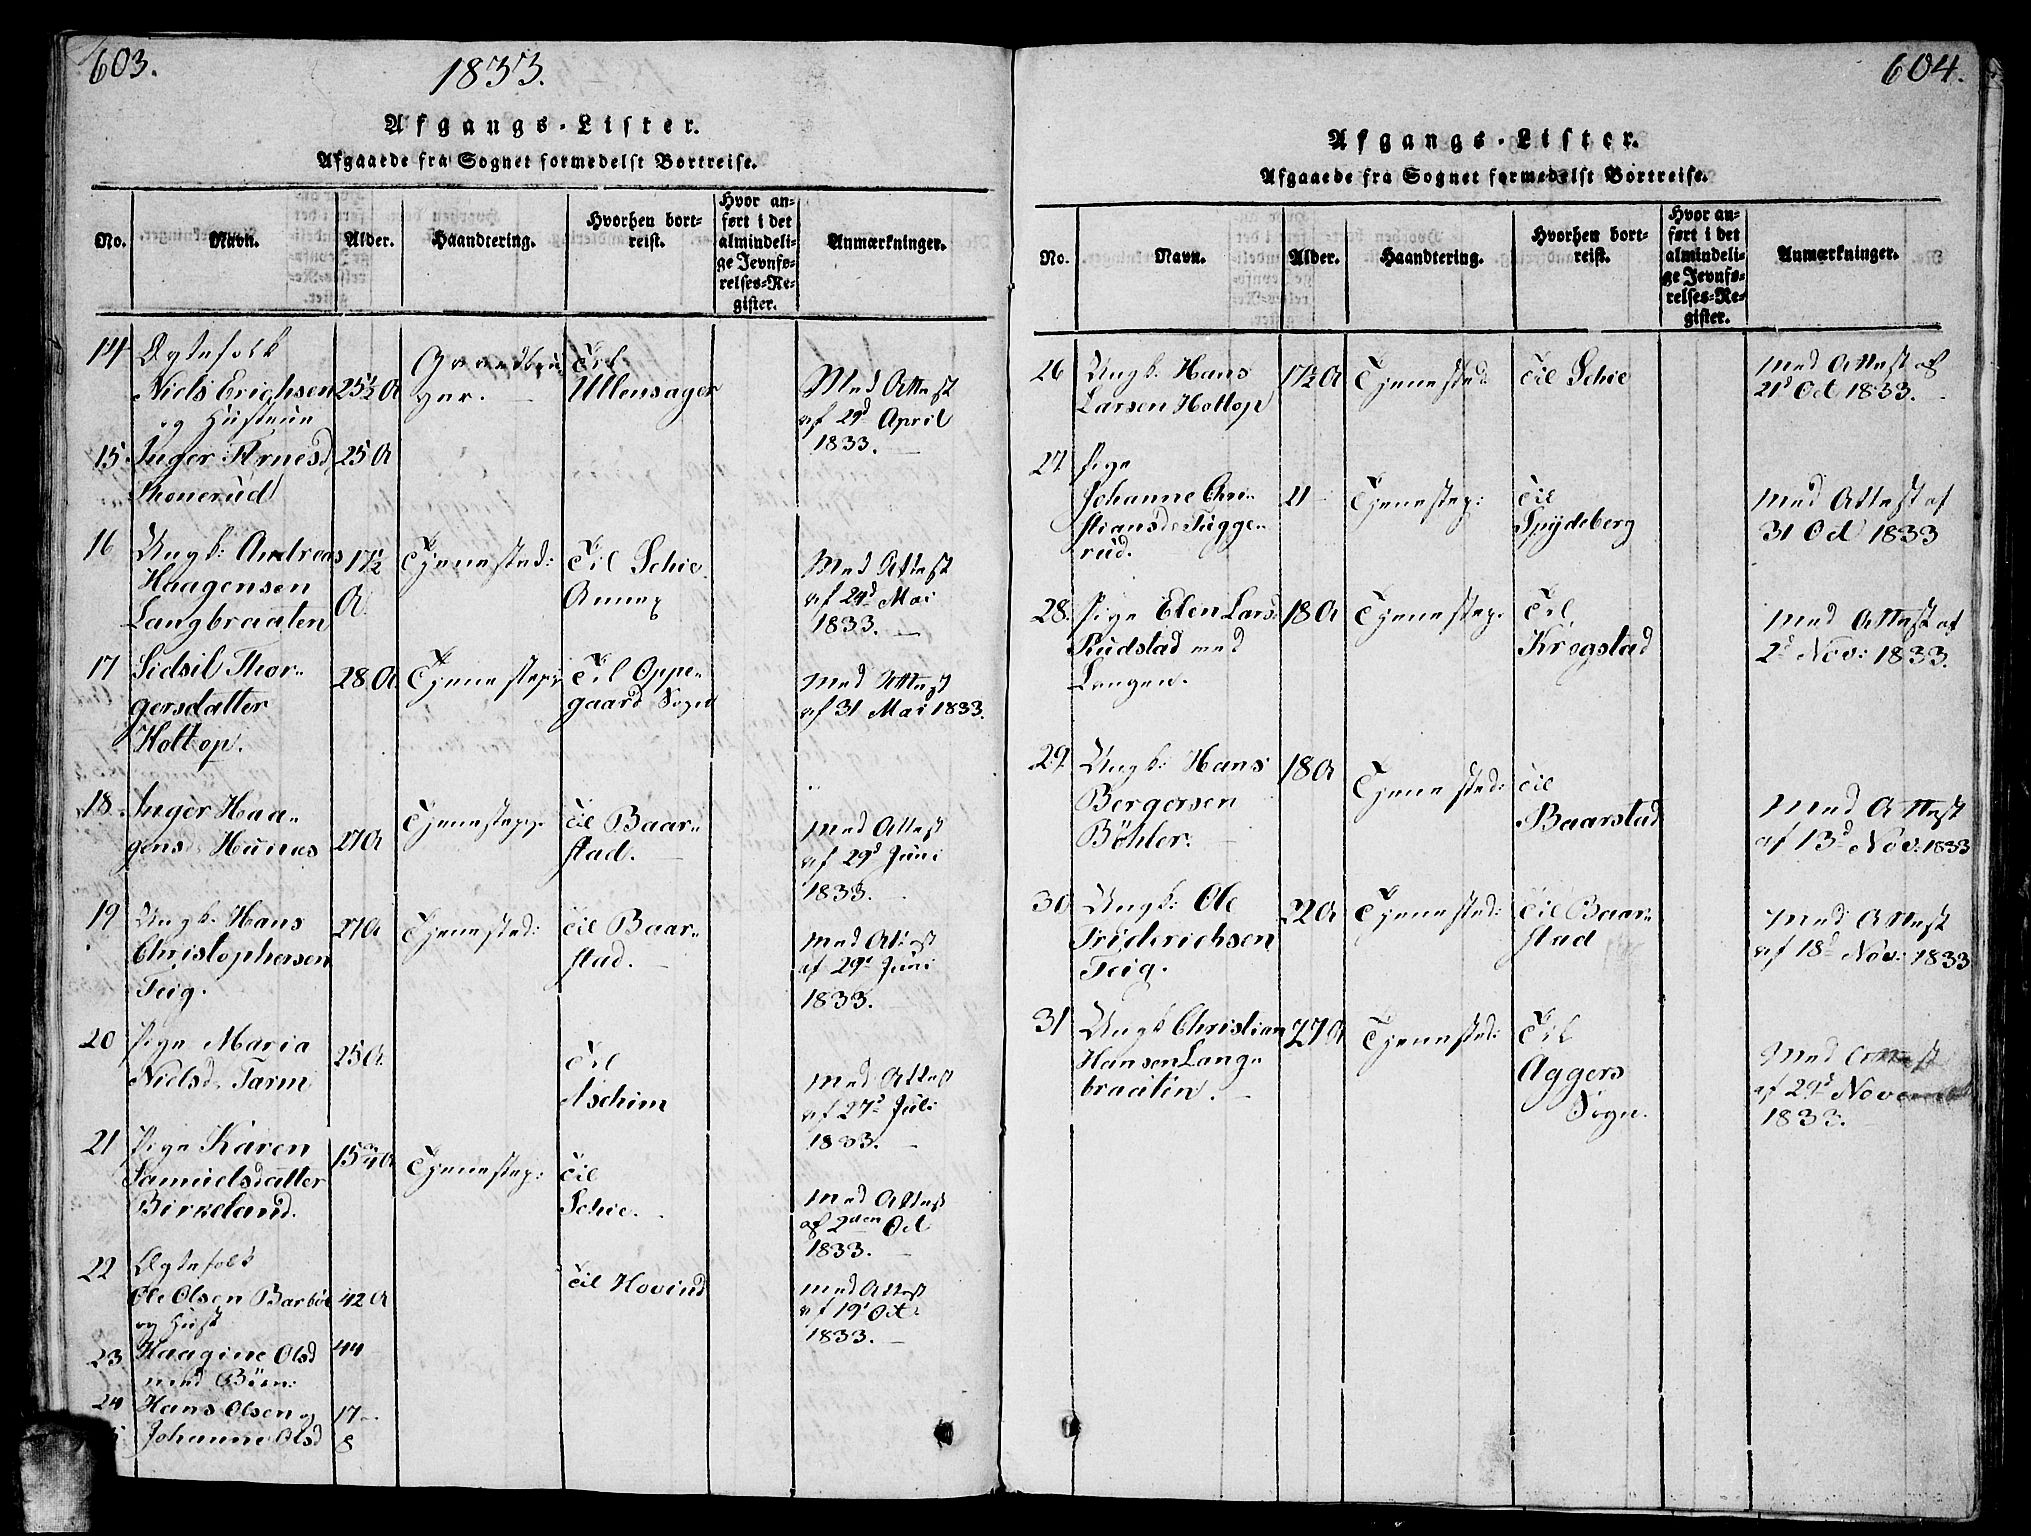 603.
1833.
Afgangs-Lister.
Afgaaede fra Sognet formedelst Bortreise.
No.
Navn.
Alder.
Haandtering.
Hvorhen bort-
reist.
Hvor an-
ført i det
almindeli-
ge Jevnfø-
relses-Re-
gister.
Anmærkninger.
14 Ægtefolk
Niels Erichsen 25½ A
og Hustrue
Til
Ullensager
Med Attest
af 29d April
1833.
15 Inger Arnesd 25 A
Skonerud
16 Ungk: Andreas 17½
Haagensen A
Langbraaten
Tjenested:
Til Schie
Annex
Med Attest
af 29d Mai
1833.
17 Sidsil Thor- 28 A
gersdatter
Holtop.
Tjenestep:
Til Oppe-
gaard Sogn
Med Attest
af 31 Mai 1833.
18. Inger Haa-
gens: Hunas 27 A
Tjenestepge
til Baar-
stad.
Med Attest
af 29d Juni
1833.
19 Ungk. Hans 27 A
Christophersen
Teig.
Tjenested:
til Baar-
stad.
Med Attest
af 29d Juni
1833.
20 Pige Maria 25 A
Nielsd. Tarm
til
Aschim
Med Attest
af 27d Juli
1833.
21 Pige Karen 15¾ A
Samuelsdatter
Birkeland.
Tjenestep:
til
Schie.
Med Attest
af 2den Oct
1833.
22 Ægtefolk
Ole Olsen Barböl 42 A
og Hust
til Hovind
Med Attest
af 19d Oct:
1833.
23 Haagine Olsd 44
med Börn:
24 Hans Olsen og 17
Johanne Olsd 8
604.
Afgangs-Lister.
Afgaaede fra Sognet formedelst Bortreise.
No.
Navn.
Alder.
Haandtering.
Hvorhen bort-
reist.
Hvor an-
ført i det
almindeli-
ge Jevnfø-
relses-Re-
gister.
Anmærkninger.
26 Ungk. Hans 17½ A
Larsen Holtop
Tjenested
til Schie
Med Attest af
21d Oct 1833.
27. Pige
Johanne Chri- 21
stiansd: Tugge-
rud.
Tjenestep:
til
Spydeberg
Med Attest af
31 Oct 1833
28. Pige Elen Lars: 18 A
Rudstad med
Langen.
Tjenestep.
Til
Krogstad
Med Attest af
2d Nov: 1833.
29. Ungk: Hans 18 A
Bergersen
Böhler.
Tjenested:
til
Baarstad
Med Attest
af 13d Nov: 1833
30 Ungk: Ole 22 A
Friderichsen
Teig.
Tjenested:
til Baar-
stad
Med Attest
af 18d Nov: 1833
31 Ungk. Christian 27 A
Hansen Lang-
braatin.
Tjenested:
Til
Aggers
Sogn.
Med Attest
af 29d November
1833.